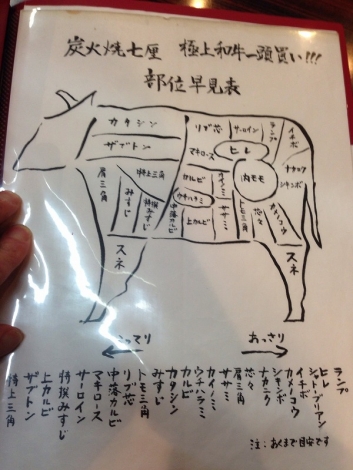 炭火焼七厘 極上和牛一頭買い!!!
部位早見表
カタシン
ザブトン
特上三角
肩三角
みすじ
特撰みすじ
中落カルビ
スネ
リブ芯
マキロース
カルビ
ウチハラミ
上カルビ
サーロイン
ヒレ
カイノミ
ササミ
ランプ
内モモ
トモ三角
芯々
イチボ
ナカニク
シキンボ
カメノコウ
スネ
こってり
あっさり
ランプ
ヒレ
シャトーブリアン
イチボ
カメノコウ
シキンボ
ナカニク
芯々
肩三角
ササミ
カイノミ
ウチハラミ
カルビ
カタシン
みすじ
トモ三角
リブ芯
中落カルビ
マキロース
サーロイン
特撰みすじ
上カルビ
ザブトン
特上三角
注:あくまで目安です